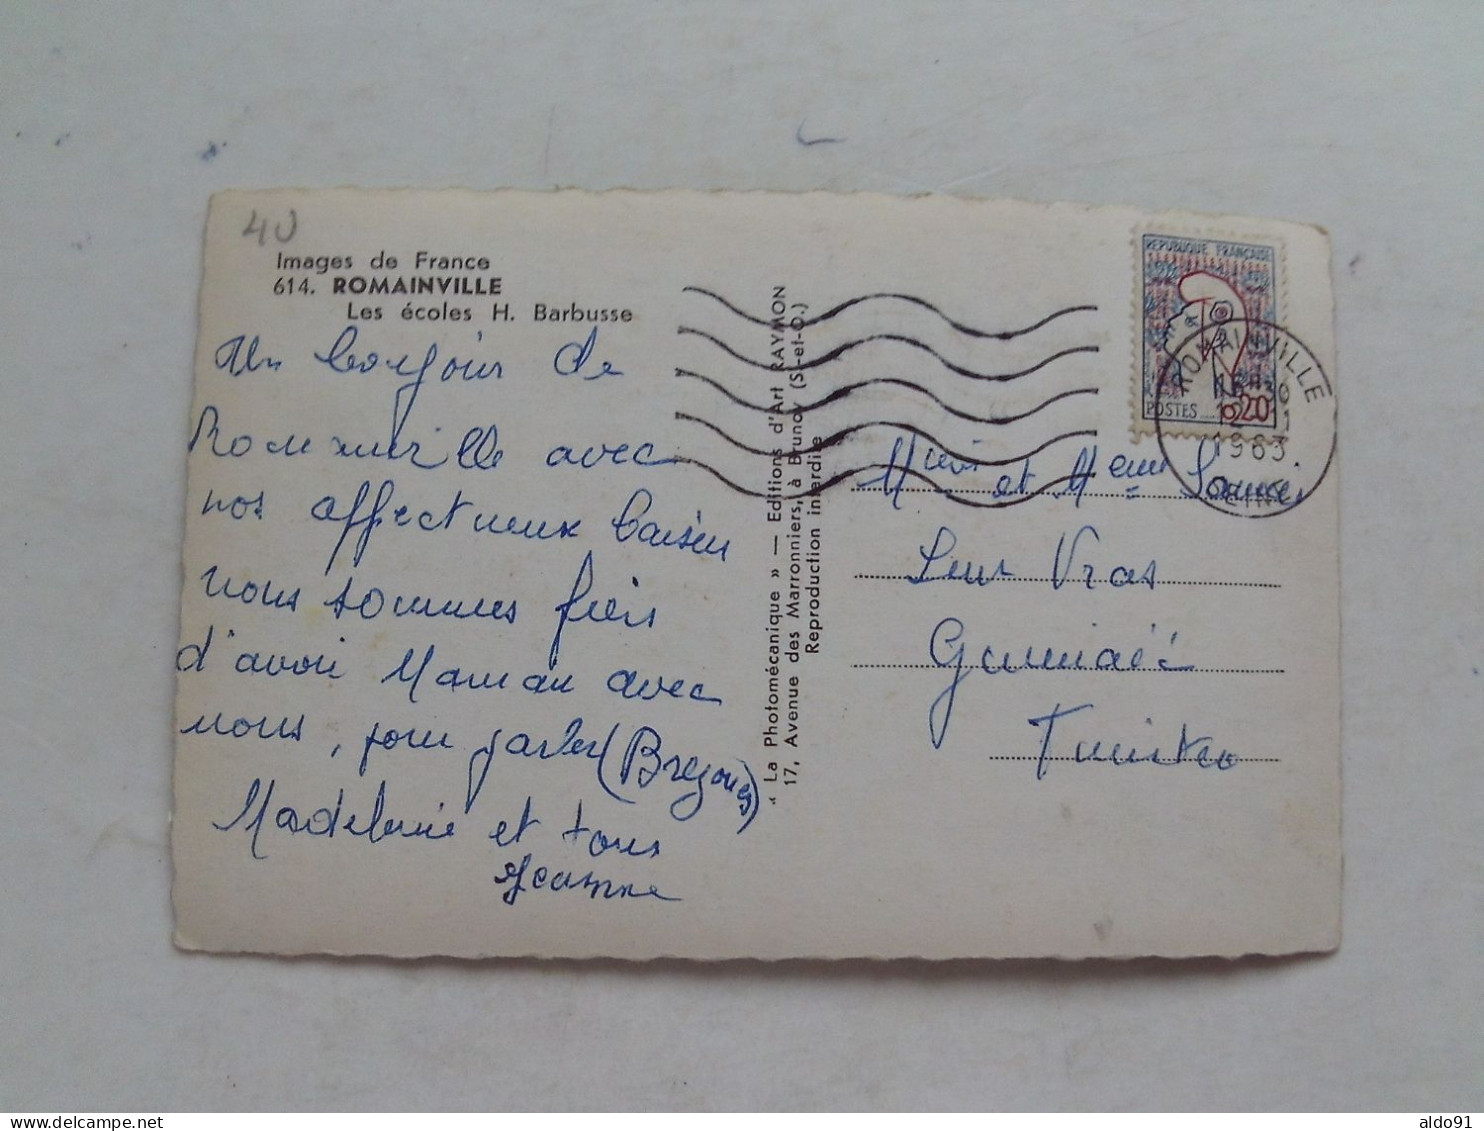 40
Images de France
614. ROMAINVILLE
Les écoles H. Barbusse
Un bonjour de
Romainville avec
nos affectueux baisers
nous sommes fiers
d'avoir Maman avec
nous, pour parler (Brezoneg)
Madeleine et tous
Jeanne
« La Photomécanique » — Editions d'Art RAYMON
17, Avenue des Marronniers, à Brunoy (S.-et-O.)
Reproduction interdite
REPUBLIQUE FRANÇAISE
POSTES 0,20
ROMAINVILLE
1963
SEINE
et
Leur Vras
aldo91